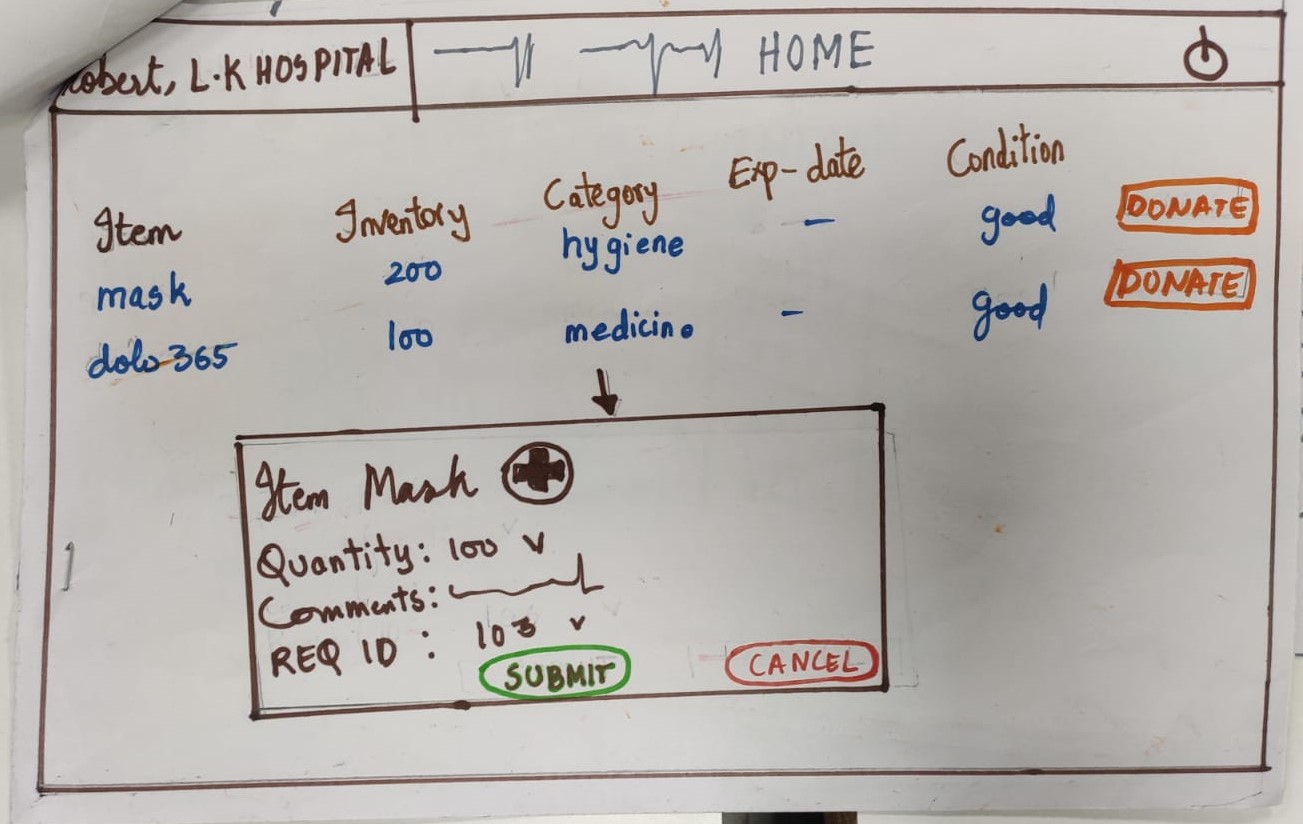 obert, L.K HOSPITAL HOME
Item Inventory Category Exp-date Condition
mask 200 hygiene - good DONATE
dolo 365 100 medicine - good DONATE
Item Mask
Quantity: 100 v
Comments:
REQ ID : 103 v
SUBMIT CANCEL